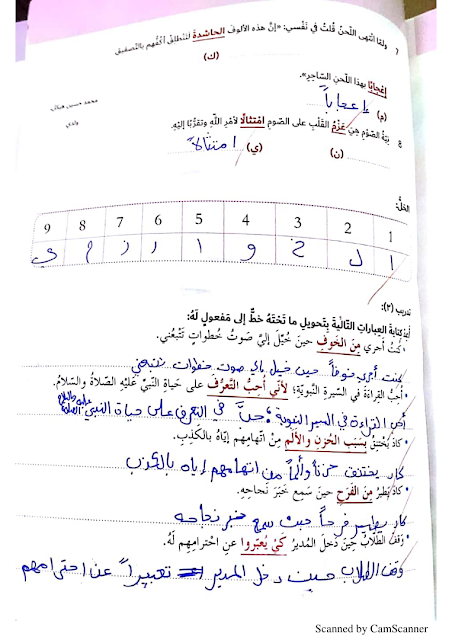 7 ولمّا انتهى اللّحنُ قُلتُ في نَفْسي: «إنَّ هذه الألوفَ الحاشدةَ لتنطلقُ أكُفُّهم بالتّصفيقِ
(ك)
إعْجابًا بهذا اللّحنِ السّاحِرِ».
محمد حسين هيكل،
ولدي
(م) إعجاباً
8 نيّةُ الصّومِ هيَ عَزْمُ القلْبِ على الصّومِ امْتثالًا لأمرِ اللّهِ وتقرُّبًا إليْهِ.
(ن) (ي) امتثالاً
الحَلُّ:
1 2 3 4 5 6 7 8 9
ا ل خ و ا ر ز م ي
تدريب (٢):
أُعيدُ كتابةَ العِباراتِ التّاليَةِ بِتَحويلِ ما تَحْتَهُ خطٌّ إلى مَفعولٍ لَهُ:
• كُنتُ أجري مِنَ الخَوفِ حينَ خُيّلَ إليَّ صَوتُ خُطواتٍ تَتْبعُني.
كنت أجري خوفاً حين خيل إلي صوت خطوات تتبعني
• أُحِبُّ القراءةَ في السّيرةِ النّبويّةِ؛ لأنّي أُحِبُّ التّعرُّفَ على حَياةِ النّبيِّ عَليْهِ الصّلاةُ والسّلامُ.
أحب القراءة في السيرة النبوية؛ حبّاً في التعرف على حياة النبي عليه الصلاة والسلام
• كادَ يَخْتنِقُ بِسَببِ الحُزنِ والألَمِ مِنَ اتّهامِهم إيّاهُ بالكَذِبِ.
كاد يختنق حزناً وألماً من اتهامهم إياه بالكذب
• كادَ يَطيرُ مِنَ الفَرَحِ حينَ سَمِعَ خَبَرَ نَجاحِهِ.
كاد يطير فرحاً حين سمع خبر نجاحه
• وَقفَ الطُّلّابُ حِينَ دَخلَ المُديرُ كَيْ يُعبّروا عنِ احْترامِهِم لَهُ.
وقف الطلاب حين دخل المدير تعبيراً عن احترامهم
Scanned by CamScanner